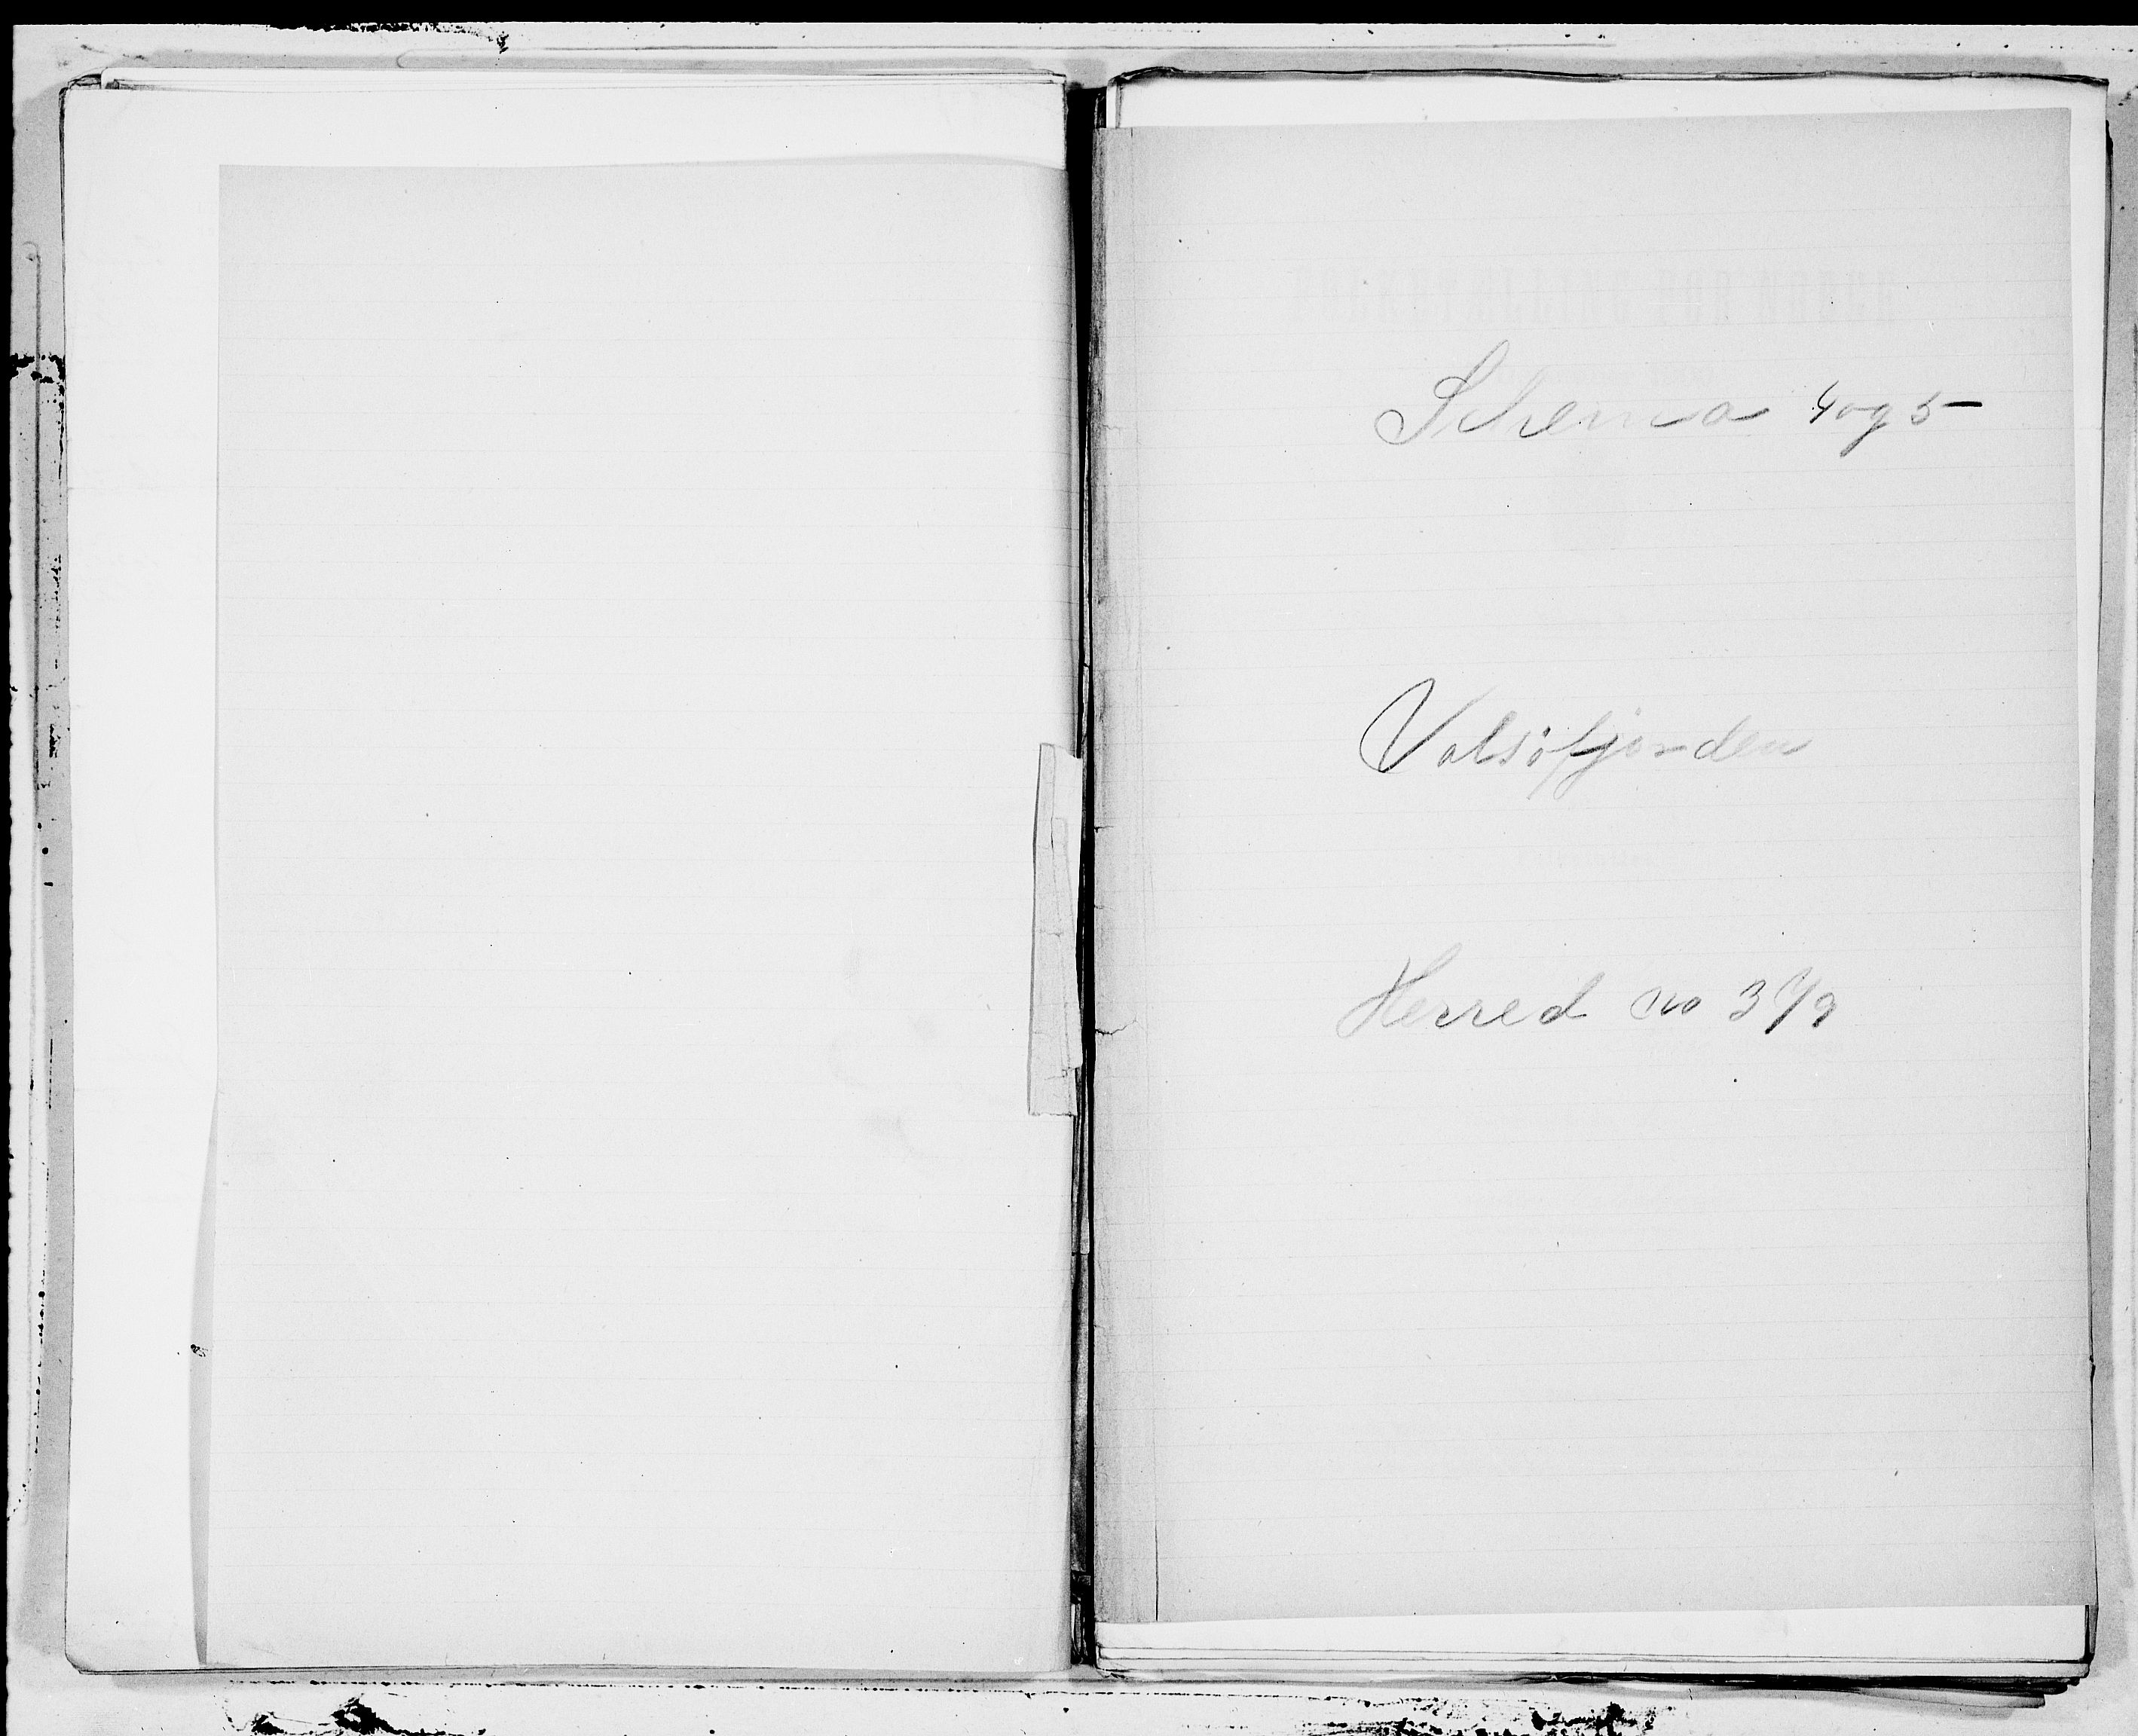 FOLKETÆLLING FOR NORGE
Schema 4 og 5
Valsöfjorden
Herred no 379